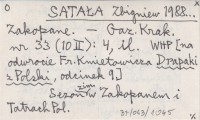 SATAŁA Zbigniew 1988..
Zakopane. — Gaz. Krak.
nr 33 (10 II): 4, il. WHP [na
odwrocie Fr. Kmietowicza Drapaki
z Polski, odcinek 9]
Sezon zim w Zakopanem i
Tatrach Pol.